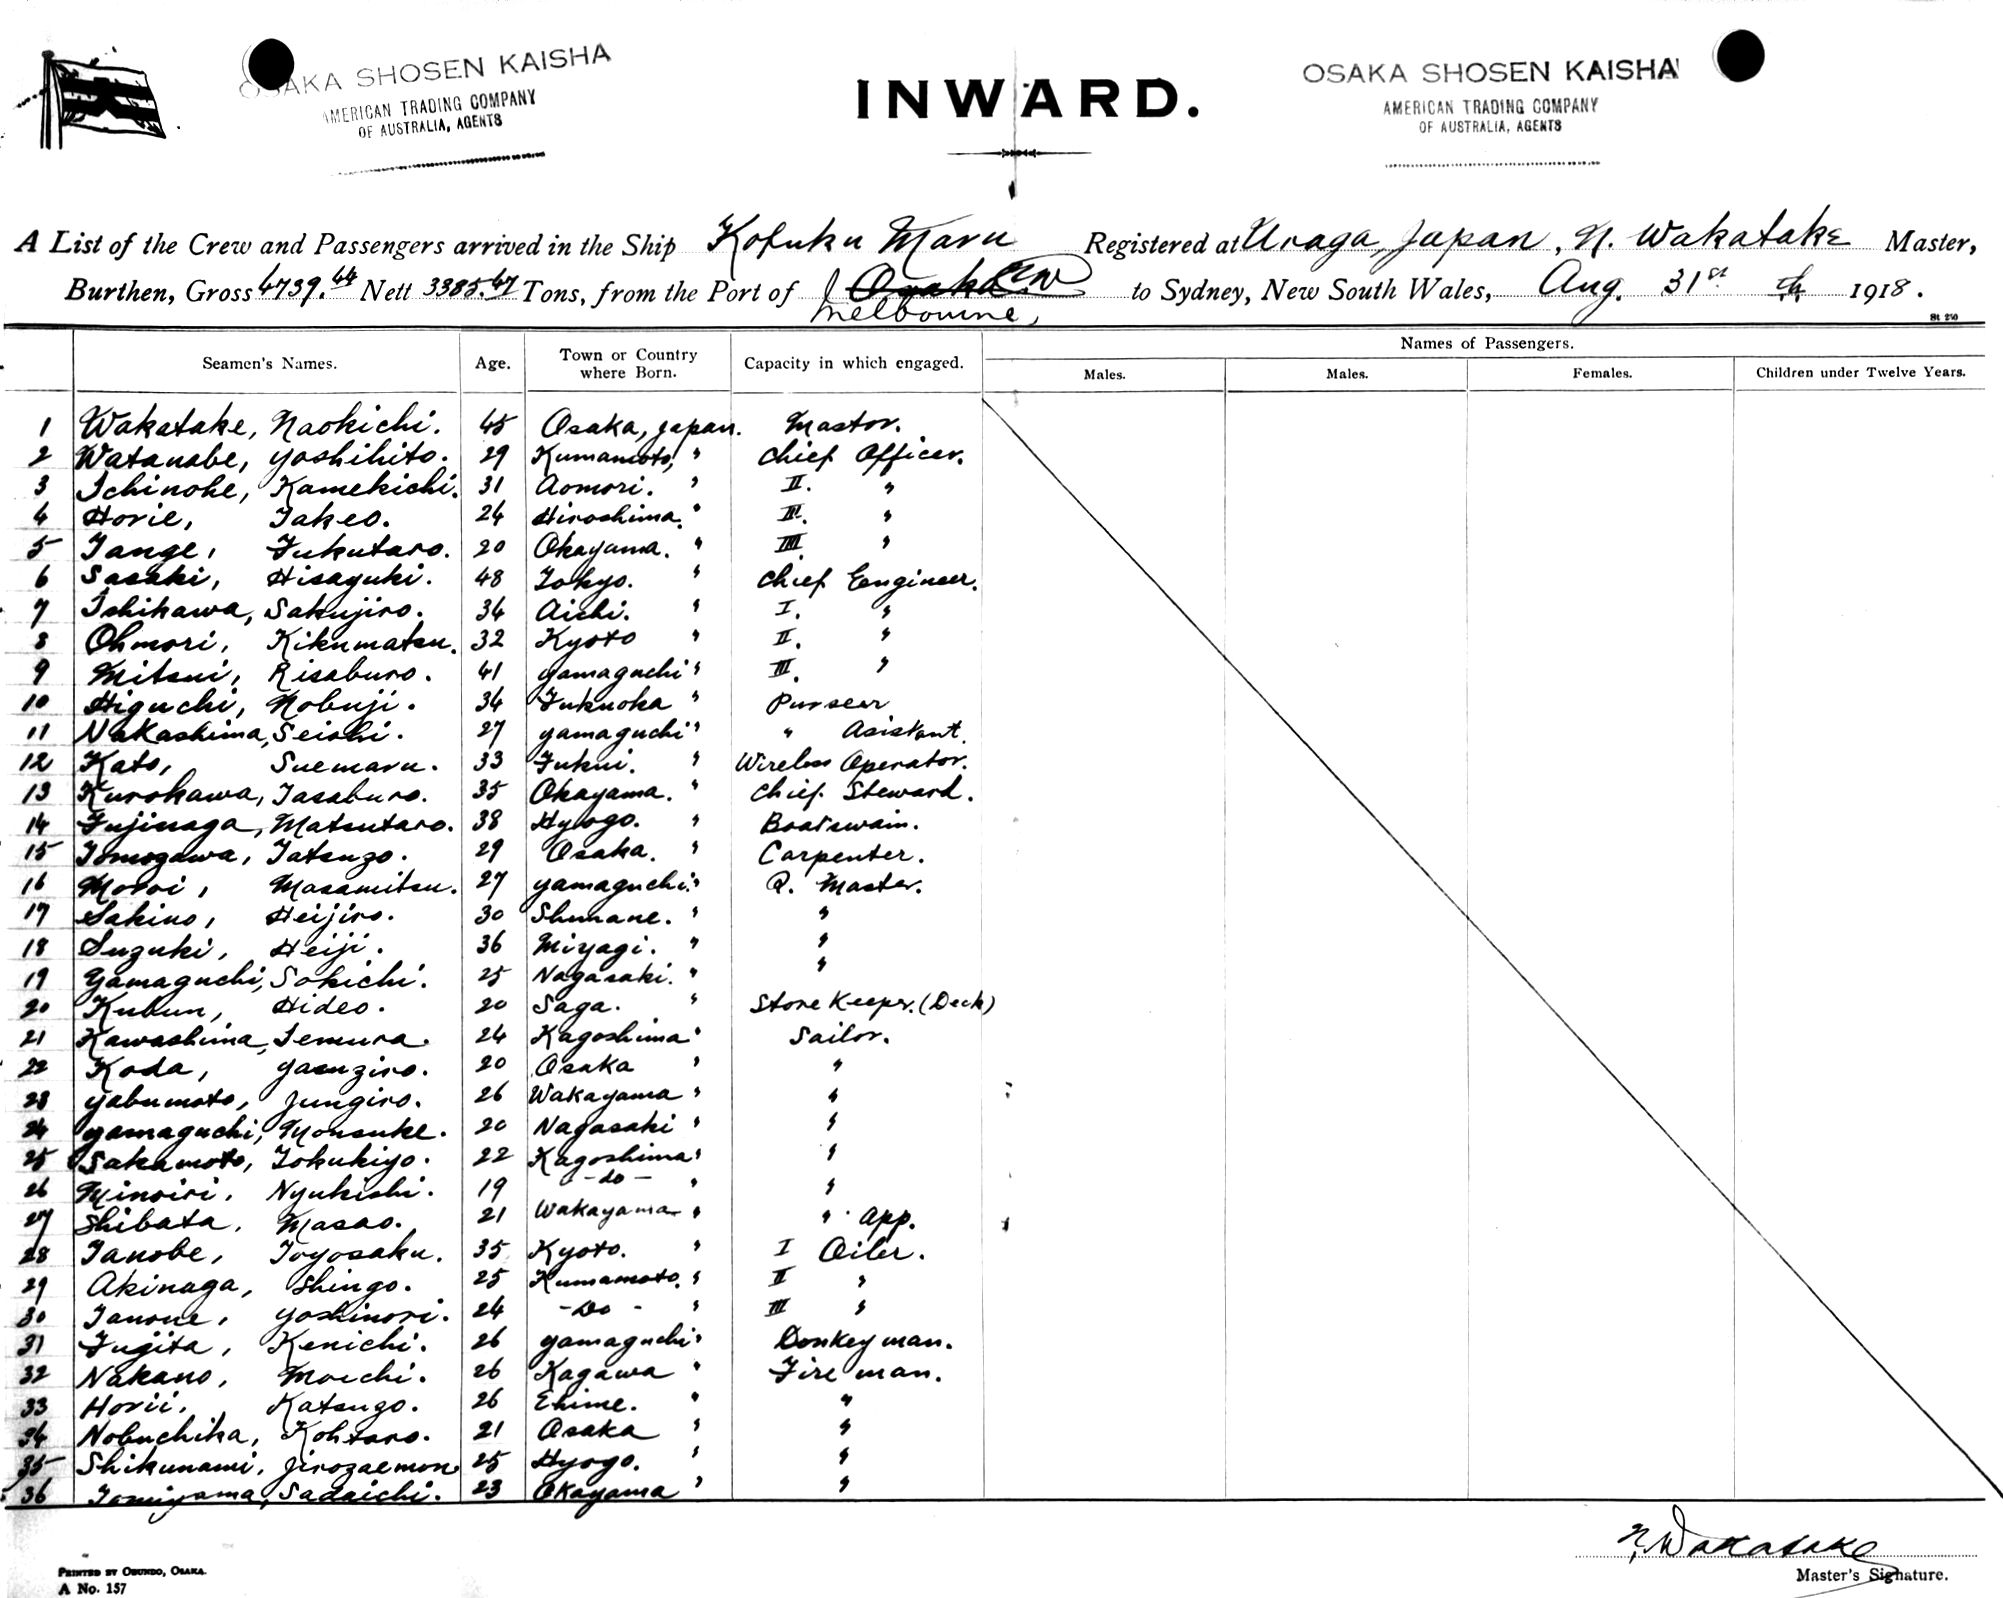 OSAKA SHOSEN KAISHA
AMERICAN TRADING COMPANY
OF AUSTRALIA, AGENTS
INWARD.
OSAKA SHOSEN KAISHA
AMERICAN TRADING COMPANY
OF AUSTRALIA, AGENTS
A List of the Crew and Passengers arrived in the Ship Kofuku Maru Registered at Uraga, Japan, N. Wakatake Master,
Burthen, Gross 4739.44 Nett 3385.67 Tons, from the Port of Osaka NW to Sydney, New South Wales, Aug. 31st th 1918.
Melbourne,
St 250
Seamen's Names. Age. Town or Country where Born. Capacity in which engaged. Names of Passengers.
Males. Males. Females. Children under Twelve Years.
1 Wakatake, Naokichi. 45 Osaka, Japan. Mastor.
2 Watanabe, Yoshihito. 29 Kumamoto, " Chief Officer.
3 Ichinohe, Kamekichi. 31 Aomori. " II. "
4 Horie, Takeo. 24 Hiroshima. " III. "
5 Tange, Fukutaro. 20 Okayama. " IIII. "
6 Sasaki, Hisayuki. 48 Tokyo. " Chief Engineer.
7 Ishikawa, Sakujiro. 34 Aichi. " I. "
8 Ohmori, Kikumatsu. 32 Kyoto " II. "
9 Mitsui, Risaburo. 41 Yamaguchi " III. "
10 Higuchi, Nobuji. 34 Fukuoka " Purseer
11 Nakashima, Seichi. 27 Yamaguchi " " Asistant.
12 Kato, Suemaru. 33 Fukui. " Wireless Operator.
13 Kurokawa, Tasaburo. 35 Okayama. " Chief Steward.
14 Fujinaga, Matsutaro. 38 Hyogo. " Boatswain.
15 Tomozawa, Tatsuzo. 29 Osaka. " Carpenter.
16 Moroi, Masamitsu. 27 Yamaguchi. " Q. Master.
17 Sakino, Heijiro. 30 Shimane. " "
18 Suzuki, Heiji. 36 Miyagi. " "
19 Yamaguchi, Sokichi. 25 Nagasaki. " "
20 Kubun, Hideo. 20 Saga. " Store Keeper. (Deck)
21 Kawashima, Temura. 24 Kagoshima " Sailor.
22 Koda, Yasuziro. 20 Osaka " "
23 Yabumoto, Jungiro. 26 Wakayama " "
24 Yamaguchi, Monsuke. 20 Nagasaki " "
25 Sakamoto, Tokukiyo. 22 Kagoshima " "
26 Minoiri. Nyukichi. 19 -do- " "
27 Shibata, Masao. 21 Wakayama " " App.
28 Tanobe, Toyosaku. 35 Kyoto. " I Oiler.
29 Akinaga, Shingo. 25 Kumamoto. " II "
30 Tanoue, Yoshinori. 24 -Do- " III "
31 Fugita, Kenichi. 26 Yamaguchi " Donkey man.
32 Nakano, Moichi. 26 Kagawa " Fire man.
33 Horii, Katsugo. 26 Ehime. " "
34 Nobuchika, Kohtaro. 21 Osaka " "
35 Shikunami, Jirozaemon 25 Hyogo. " "
36 Tomiyama, Sadaichi. 23 Okayama " "
N. Wakatake
Master's Signature.
PRINTED BY OBUNDO, OSAKA.
A No. 157